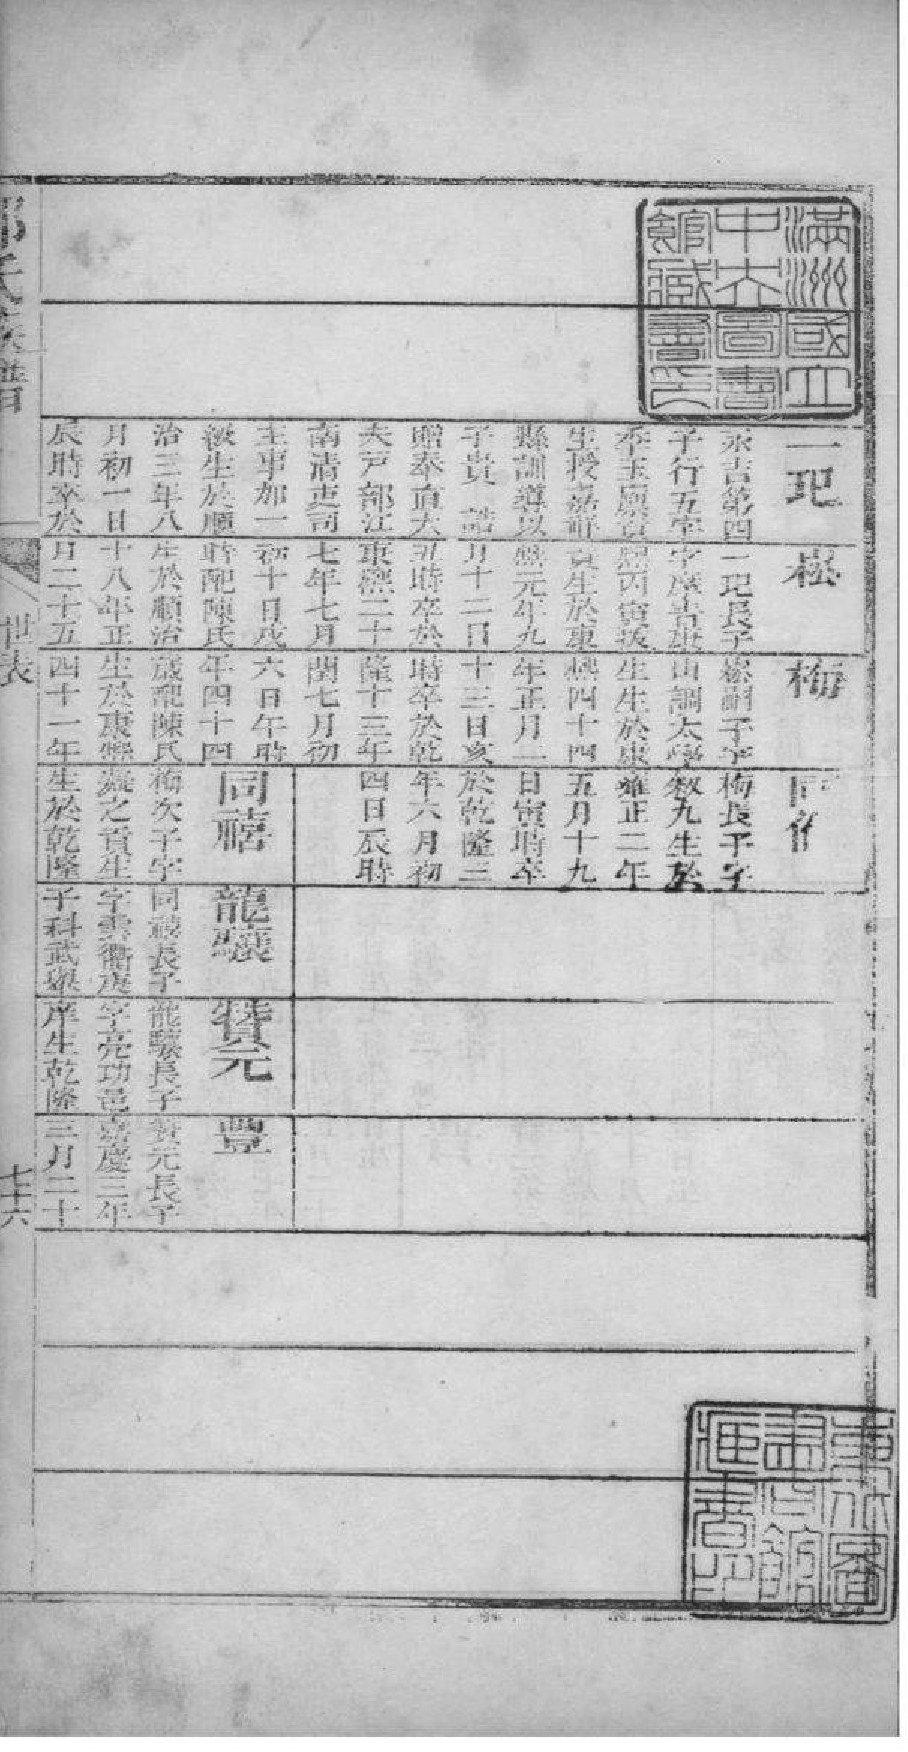 滿洲國立
中央圖書
館藏書印
一玘
永吉第四
子行五字
季玉廩貢
生授嘉祥
縣訓導以
子貴 誥
贈奉直大
夫戸部江
南清吏司
主事加一
級生於順
治三年八
月初一日
辰時卒於
崧
一玘長子
字吉康
熙丙寅拔
貢生於康
熙元年九
月十二日
丑時卒於
康熙二十
七年七月
初十日戌
時配陳氏
生於順治
十八年正
月二十五
梅
崧嗣子字
山調太學
生生於康
熙四十四
年正月二
十三日亥
時卒於乾
隆十三年
閏七月初
六日午時
年四十四
歲配陳氏
生於康熙
四十一年
同
梅長子字
敘九生於
雍正二年
五月十九
日寅時卒
於乾隆三
年六月初
四日辰時
同禧
梅次子字
燕之貢生
生於乾隆
龍驤
同禧長子
字雲衢庚
子科武舉
贊元
龍驤長子
字亮功邑
庠生乾隆
豐
贊元長子
嘉慶三年
三月二十
氏族譜
世表
七十六
東北圖
書館
藏書印